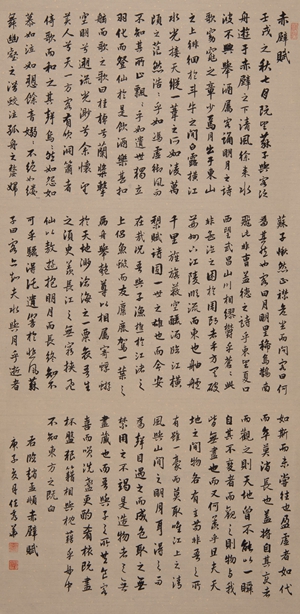 赤壁賦
壬戌之秋七月既望蘇子與客泛
舟遊於赤壁之下清風徐來水
波不興舉酒屬客誦明月之詩
歌窈窕之章少焉月出於東山
之上徘徊於斗牛之間白露橫江
水光接天縱一葦之所如淩萬
頃之茫然浩浩乎如馮虛御風而
不知其所止飄飄乎如遺世獨立
羽化而登仙於是飲酒樂甚扣
舷而歌之歌曰桂棹兮蘭槳擊
空明兮溯流光渺渺兮余懷望
美人兮天一方客有吹洞簫者
倚歌而和之其聲嗚嗚然如怨如
慕如泣如訴餘音嫋嫋不絕如縷
舞幽壑之潛蛟泣孤舟之嫠婦
蘇子愀然正襟危坐而問客曰何
爲其然也客曰月明星稀烏鵲南
飛此非曹孟德之詩乎東望夏口
西望武昌山川相繆鬱乎蒼蒼此
非孟德之困於周郎者乎方其破
荊州下江陵順流而東也舳艫
千里旌旗蔽空釃酒臨江橫
槊賦詩固一世之雄也而今安
在哉況吾與子漁樵於江渚之
上侶魚蝦而友麋鹿駕一葉之
扁舟舉匏尊以相屬寄蜉蝣
於天地渺滄海之一粟哀吾生
之須臾羨長江之無窮挾飛
仙以遨遊抱明月而長終知不
可乎驟得託遺響於悲風蘇
子曰客亦知夫水與月乎逝者
如斯而未嘗往也盈虛者如代
而卒莫消長也蓋將自其變者
而觀之則天地曾不能以一瞬
自其不變者而觀之則物與我
皆無盡也而又何羨乎且夫天
地之間物各有主苟非吾之所
有雖一毫而莫取惟江上之清
風與山間之明月耳得之而
爲聲目遇之而成色取之無
禁用之不竭是造物者之無
盡藏也而吾與子之所共食客
喜而笑洗盞更酌肴核既盡
杯盤狼籍相與枕藉乎舟中
不知東方之既白
右臨趙孟頫赤壁賦
庚子亥月任